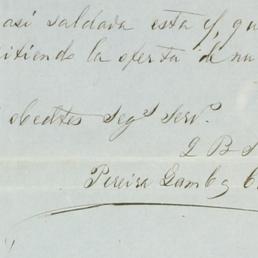 así saldada esta y, qu
itiendo la oferta de nu
obedtes Segs Serv.
Q B S
Pereira Gamba & C